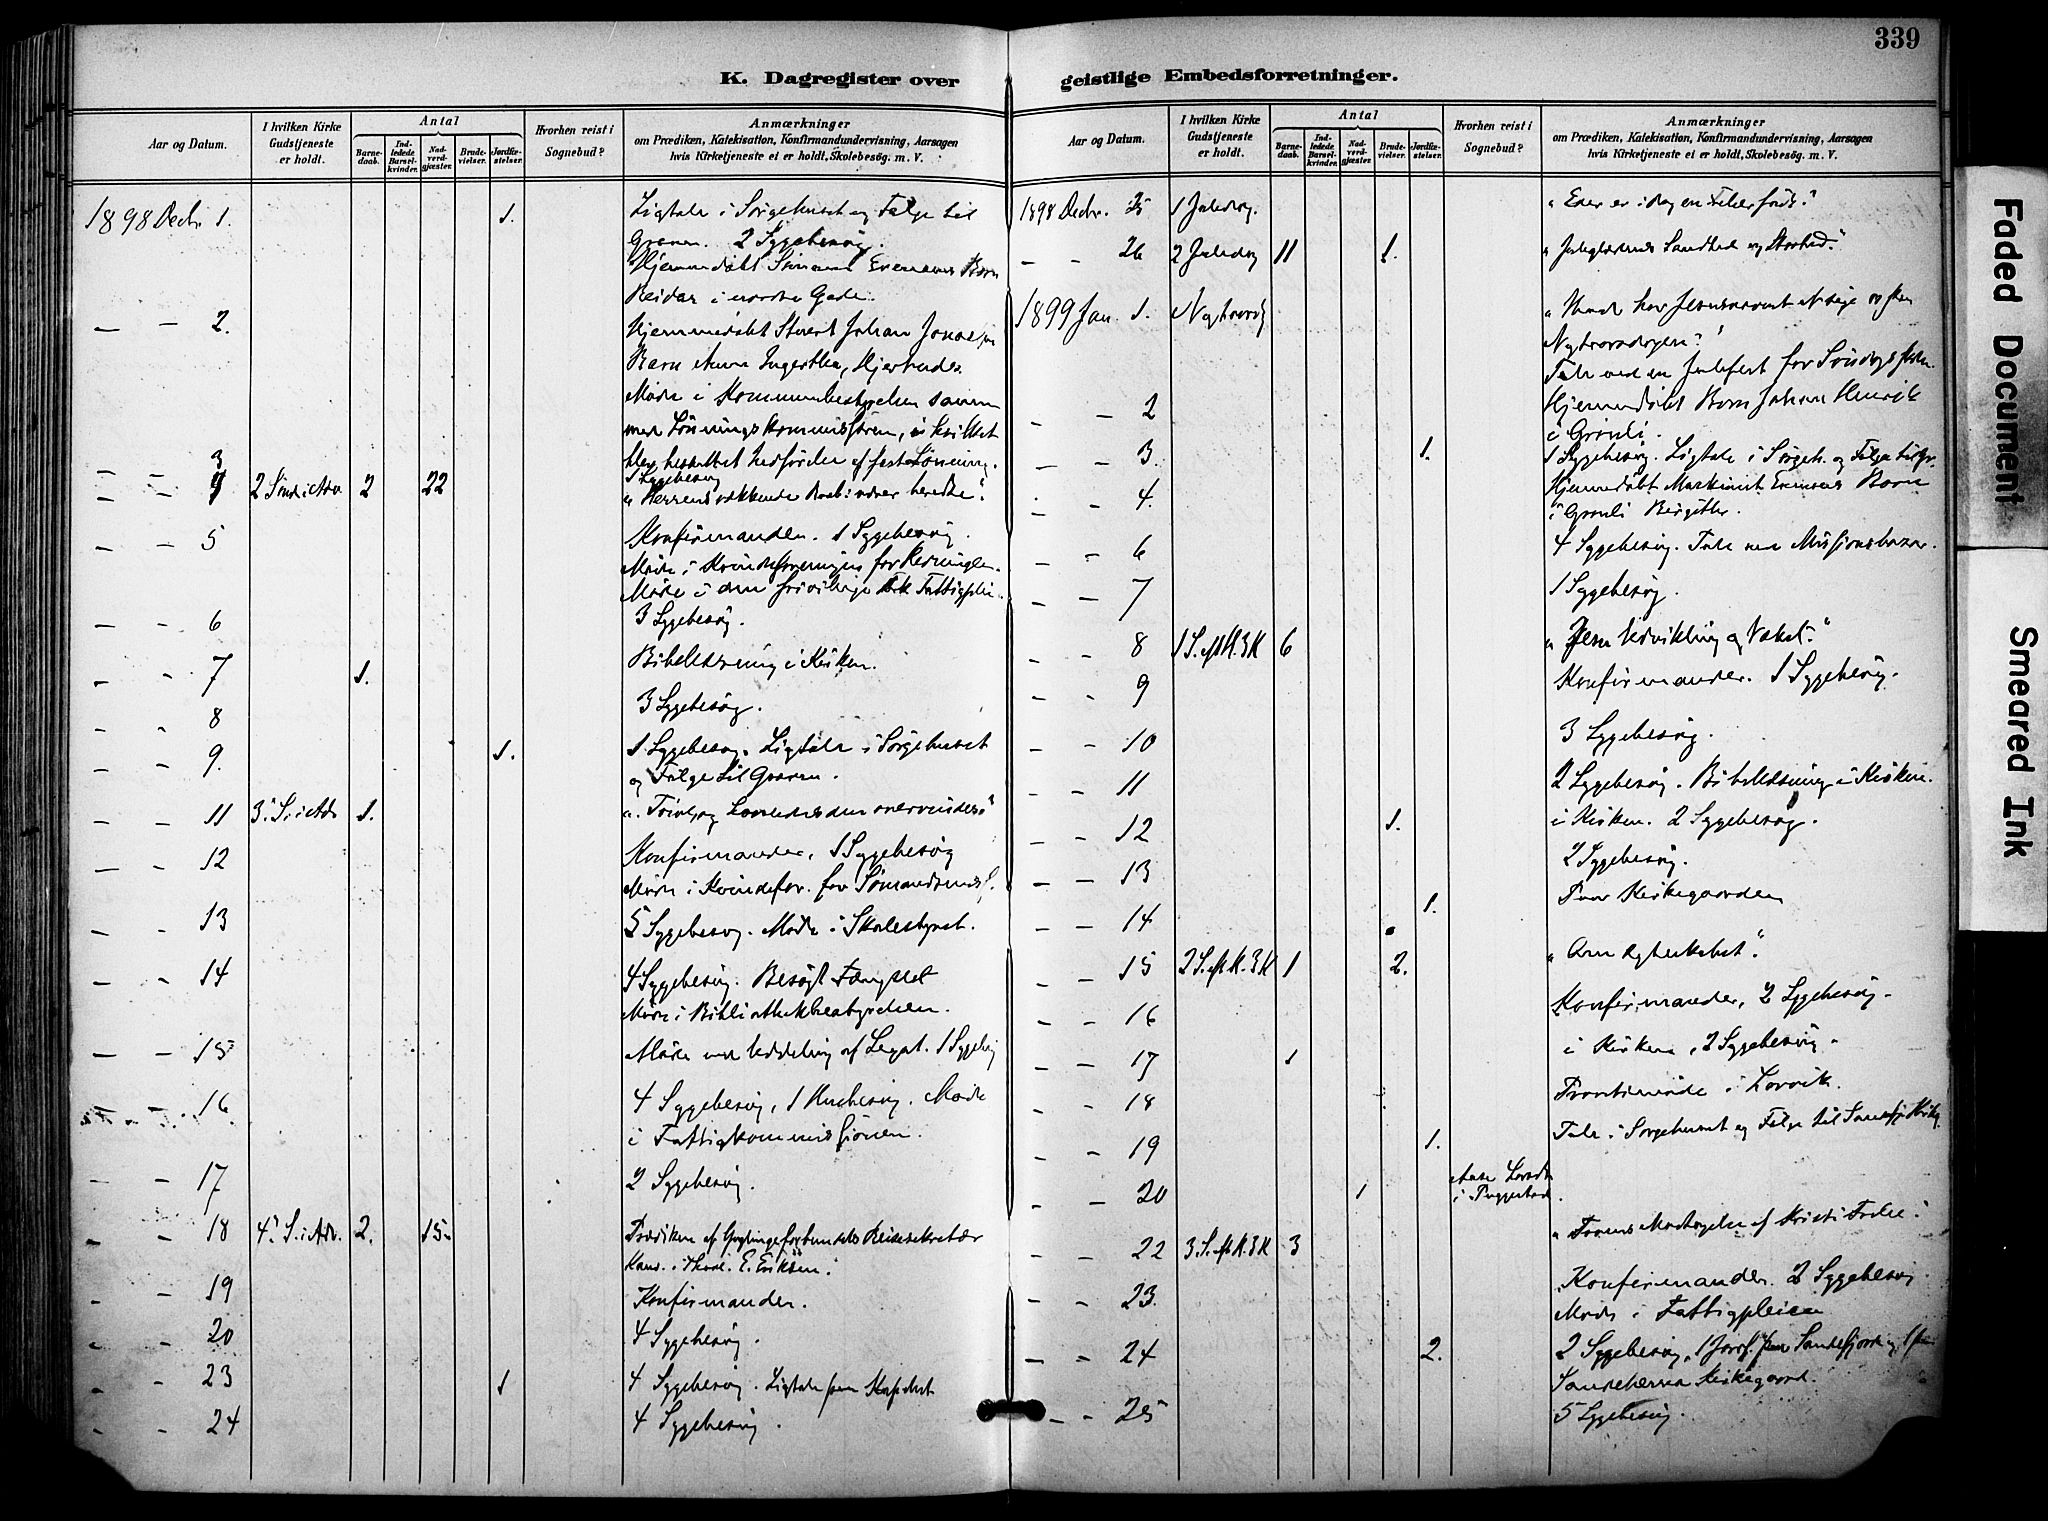 339
K. Dagregister over geistlige Embedsforretninger.
Aar og Datum. I hvilken Kirke Gudstjeneste er holdt. Antal Barnedaab. Indledede Barselkvinder. Nadverdgjæster. Brudevielser. Jordfæstelser. Hvorhen reist i Sognebud? Anmærkninger om Prædiken, Katekisation, Konfirmandundervisning, Aarsagen hvis Kirketjeneste ei er holdt, Skolebesög. m. V.
1898 Decbr 1. 1. Ligtale i Sørgehuset og Følge til
Graven. 2 Sygebesøg.
Hjemmedøbt Børn
Reidar i nordre Gade.
— — 2. Hjemmedøbt Johan
Barn Anna Ingertha, Hjertnes
Møde i Kommunebestyrelsen sammen
med Lønningskommissionen, i hvilket
blev besluttet Indførelse af fast Lønning.
— — 3 1 Sygebesøg
— — 4 2 Sønd i Adv 2 22 "Herrens vækkende Raab: vær beredte".
— — 5 Konfirmander. 1 Sygebesøg.
Møde i Kvindeforeningen for
Møde i den frivillige Fattigpleie.
— — 6 3 Sygebesøg.
— — 7 1. Bibellæsning i Kirken.
— — 8 3 Sygebesøg.
— — 9. 1. 1 Sygebesøg. Ligtale i Sørgehuset
og Følge til Graven.
— — 11 3. S. i Adv 1. "Tvivl og hvorledes den overvindes"
— — 12 Konfirmander, 1 Sygebesøg
Møde i Kvindefor. for Sømandsmiss.
— — 13 5 Sygebesøg. Møde i Skolestyret.
— — 14 4 Sygebesøg. Besøgt Fængslet
Møde i Bibliothekbestyrelsen.
— — 15 Møde ved Uddeling af Legat. 1 Sygebesøg
— — 16 4 Sygebesøg, 1 Husbesøg. Møde
i Fattigkommissionen.
— — 17 2 Sygebesøg.
— — 18 4. S. i Adv. 2. 15. Prædiken af Ynglingeforbundets Reisesekretær
Kand. i Theol. E. Eriksen.
— — 19 Konfirmander.
— — 20 4 Sygebesøg.
— — 23 1 4 Sygebesøg. Ligtale paa Kapellet
— — 24 4 Sygebesøg.
Aar og Datum. I hvilken Kirke Gudstjeneste er holdt. Antal Barnedaab. Indledede Barselkvinder. Nadverdgjæster. Brudevielser. Jordfæstelser. Hvorhen reist i Sognebud? Anmærkninger om Prædiken, Katekisation, Konfirmandundervisning, Aarsagen hvis Kirketjeneste ei er holdt, Skolebesög. m. V.
1898 Decbr. 25 1 Juledag. "Eder er idag en Frelser født."
— — 26 2 Juledag 11 1. "Juleglædens Sandhed og Storhed."
1899 Jan. 1. Nytaarsdag "Hvad har Jesusnavnet at sige os paa
Nytaarsdagen?"
Tale ved en Julefest for Søndagsskolen.
— — 2 Hjemmedøbt Barn Johan Henrik
i Grønli.
— — 3. 1. 1 Sygebesøg. Ligtale i Sørgeh. og Følge til Gr.
— — 4. Hjemmedøbt Barn
i Grønli Birgitte.
— — 6 4 Sygebesøg. Tale ved Missionsbazar.
— — 7 1 Sygebesøg.
— — 8 1 S. eft H. 3 K 6 "Jesu Udvikling og Vækst."
— — 9 Konfirmander. 1 Sygebesøg.
— — 10 3 Sygebesøg.
— — 11 2 Sygebesøg. Bibellæsning i Kirken.
— — 12 1. i Kirken. 2 Sygebesøg.
— — 13 2 Sygebesøg.
— — 14 1. Paa Kirkegaarden
— — 15 2 S. eft H. 3 K 1 2. "Om Ægteskabet".
— — 16 Konfirmander, 2 Sygebesøg.
— — 17 1 i Kirken, 2 Sygebesøg.
— — 18 Provstimøde i Larvik.
— — 19 1. Tale i Sørgehuset og Følge til Sandefj. Kirkeg.
— — 20 1 i Puggestad.
— — 22 3. S. eft H. 3 K 3 "Troens Modtagelse af Kristi Frelse."
— — 23. Konfirmander. 2 Sygebesøg.
Møde i Fattigpleien
— — 24 2. 2 Sygebesøg, 1 Jordf. paa Sandefjord og 1 paa
Sandeherred Kirkegaard.
— — 25 5 Sygebesøg.
Faded Document
Smeared Ink